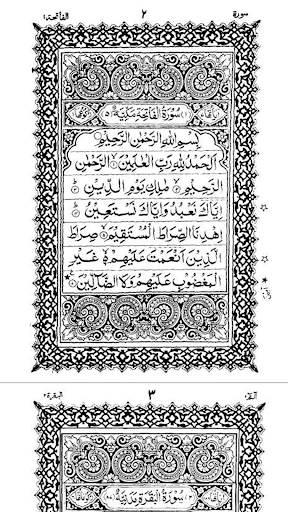 سورة ٢ الفاتحة ١
(١) سُوْرَةُ الْفَاتِحَةِ مَكِّيَّةٌ (٥)
بِسْمِ اللهِ الرَّحْمٰنِ الرَّحِيْمِ
اَلْحَمْدُ لِلّٰهِ رَبِّ الْعٰلَمِيْنَ ۙ الرَّحْمٰنِ
الرَّحِيْمِ ۙ مٰلِكِ يَوْمِ الدِّيْنِ ؕ
اِيَّاكَ نَعْبُدُ وَاِيَّاكَ نَسْتَعِيْنُ ؕ
اِهْدِنَا الصِّرَاطَ الْمُسْتَقِيْمَ ۙ صِرَاطَ
الَّذِيْنَ اَنْعَمْتَ عَلَيْهِمْ ۙ غَيْرِ
الْمَغْضُوْبِ عَلَيْهِمْ وَلَا الضَّآلِّيْنَ
٣ البقرة ٢
سُوْرَةُ الْبَقَرَةِ مَدَنِيَّةٌ